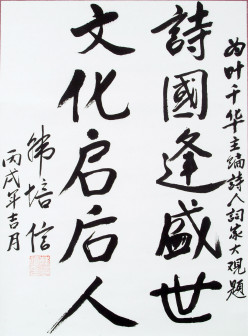 为叶千华主编詩人词家大观题
詩國逢盛世
文化启后人
韩培信
丙戌年吉月